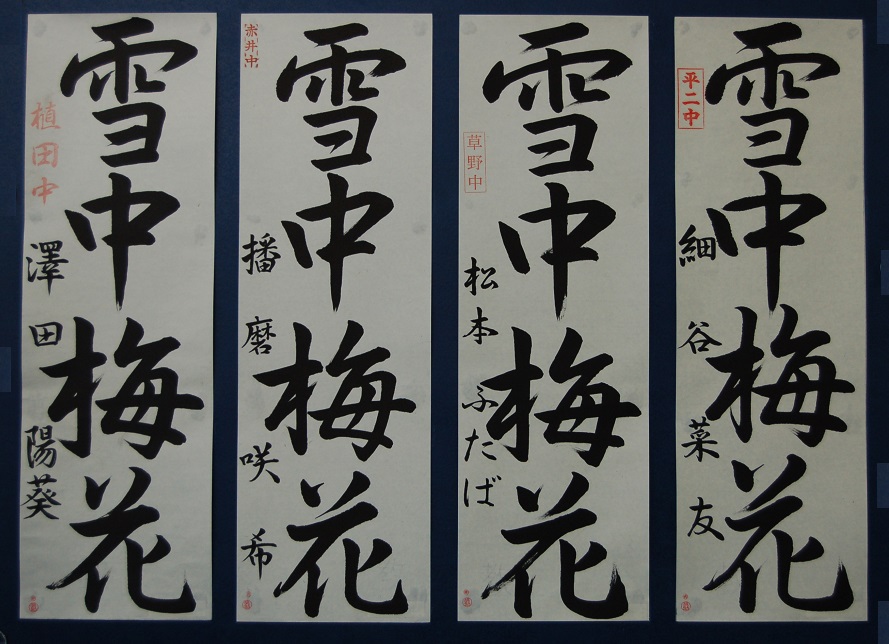 雪中梅花
平二中
細谷菜友
雪中梅花
草野中
松本ふたば
雪中梅花
赤井中
播磨咲希
雪中梅花
植田中
澤田陽葵